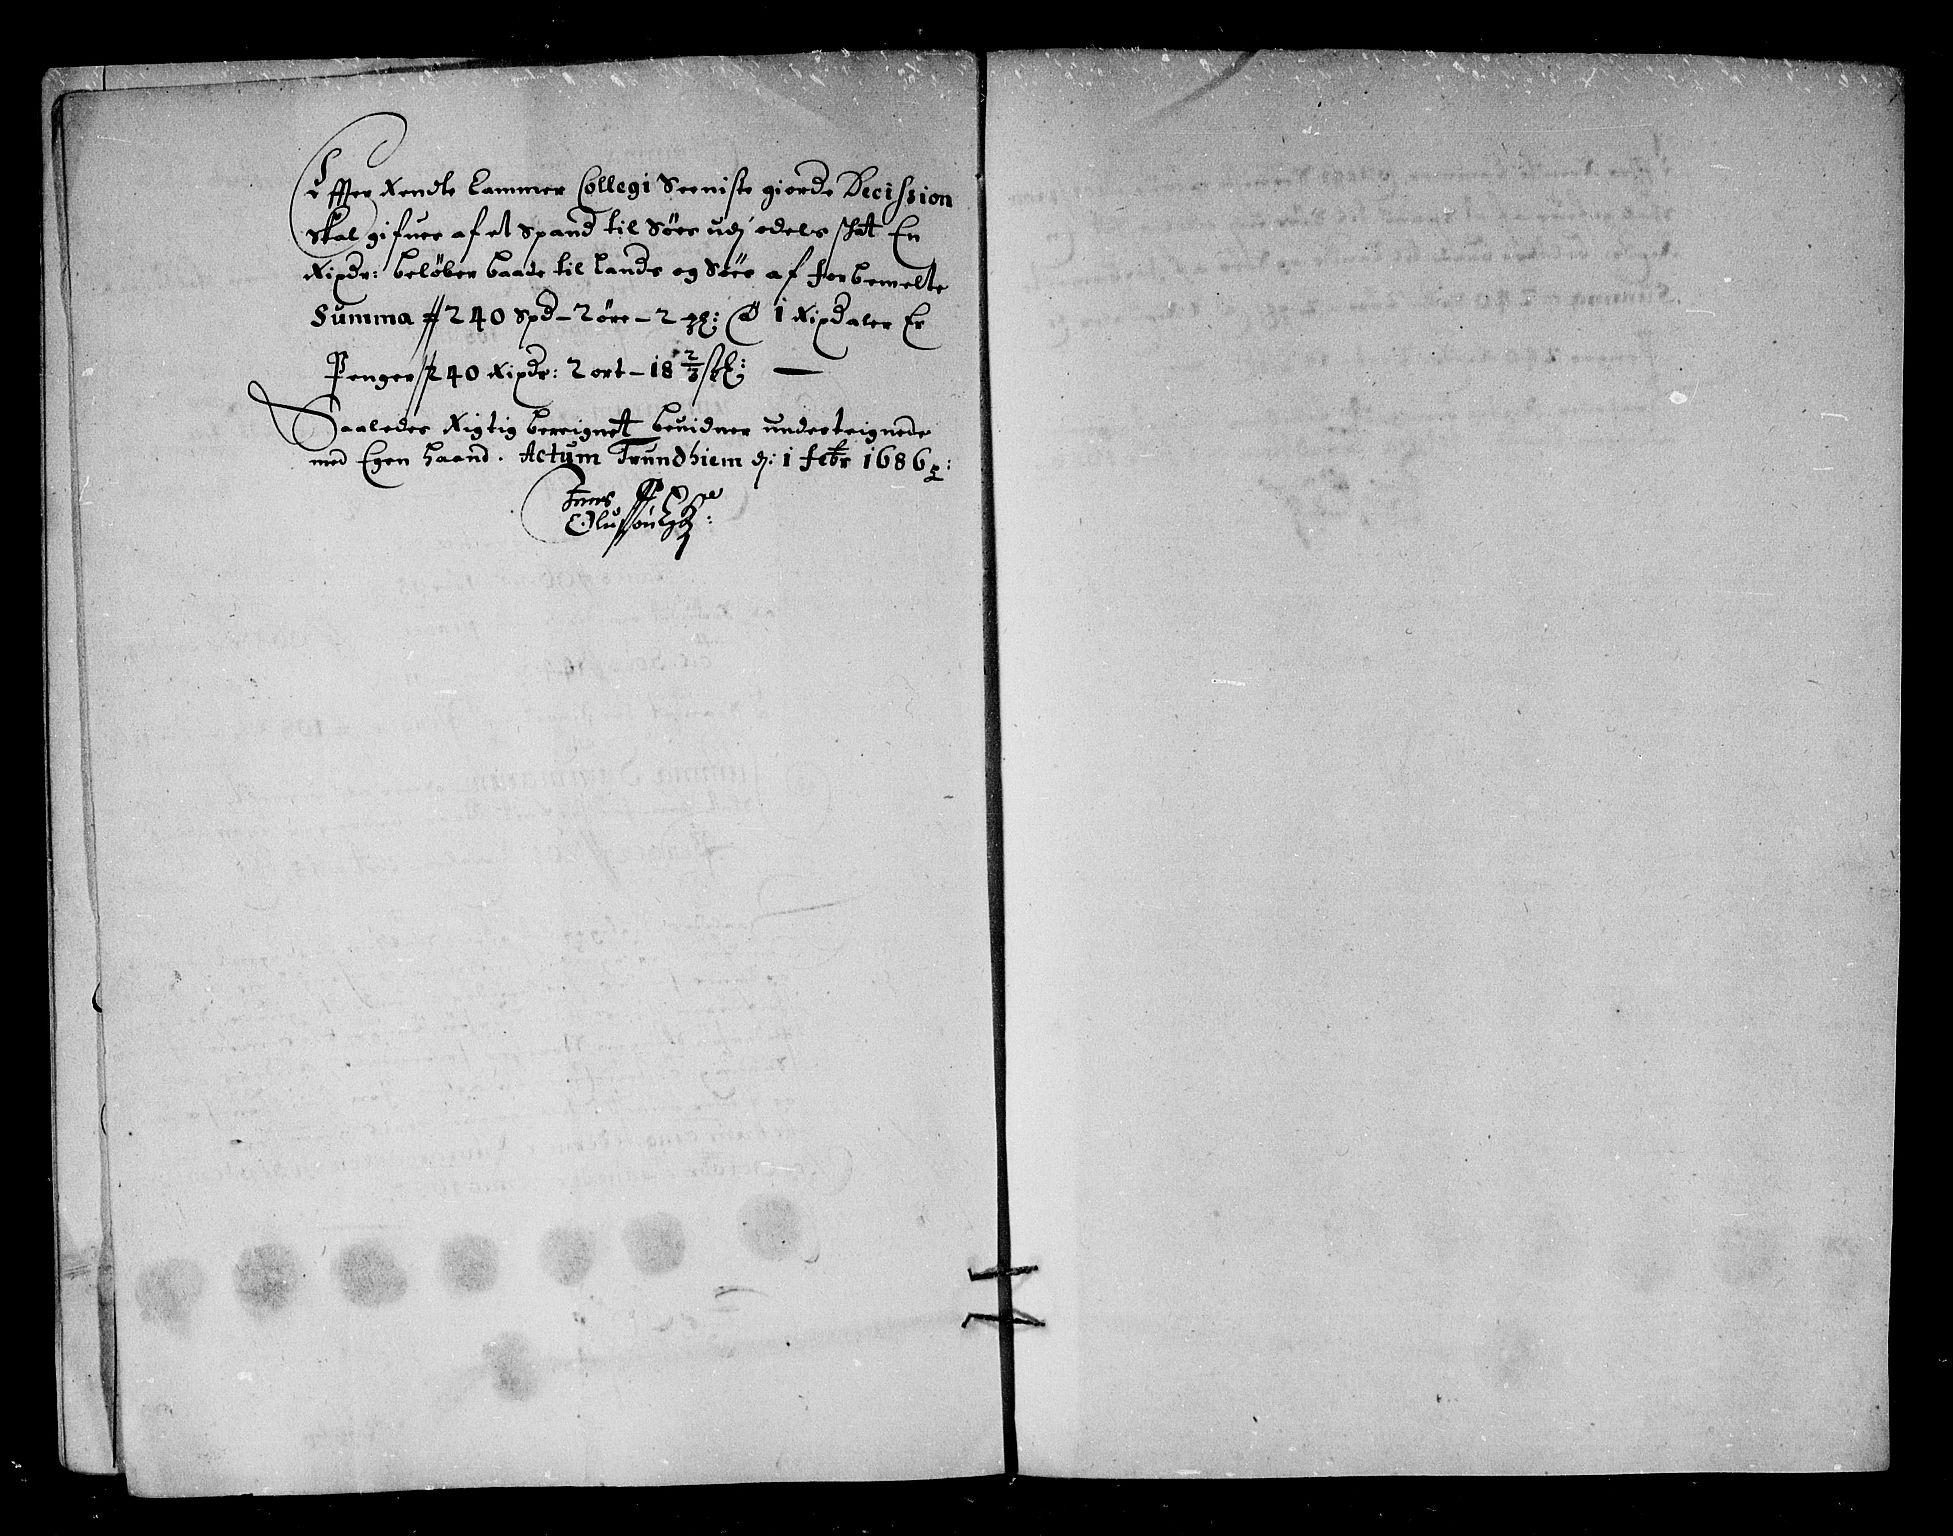 Effter Rendte Cammer Collegi Seeniste giorde Decission
skal gifues af et Spand til Søes udj odels schat En
Rixdr: beløber baade til Lands og Søes af forbemelte
Summa 240 Spd - 2 øre - 2 @ 1 Rixdaler Er
Penger 240 Rixdr: 2 ort - 18 2/3 sk:
Saaledes Rigtig bereignet beuidner underteignede
med Egen haand. Actum Trundhiem d: 1 febr 1686
Jens
Olufsøn